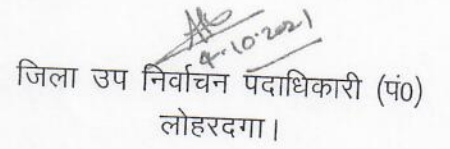 4-10-2021
जिला उप निर्वाचन पदाधिकारी (पं0)
लोहरदगा।